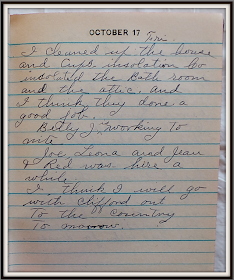 OCTOBER 17 Firi.
I cleaned up the house
and Cups insolation Co
insolated the Bath room
and the attic. and
I think they done a
good job.
Betty J. working to
nite
Joe, Leona and Jean
& Red was here a
while.
I think I will go
with Clifford out
to the country
to morrow.